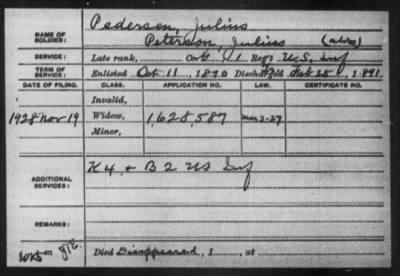 Pedersen, Julius
NAME OF SOLDIER: Peterson, Julius (alias)
SERVICE: Late rank, Co. G, 1 Reg't U.S. Inf
TERM OF SERVICE: Enlisted Oct 11, 1890 Discharged Feb 28, 1891
DATE OF FILING. CLASS. APPLICATION NO. LAW. CERTIFICATE NO.
Invalid,
1928 Nov 19 Widow, 1,628,587 Mar 3-27
Minor,
ADDITIONAL SERVICES: K 4, + B 2 US Inf
REMARKS:
Died Disappeared, 1 , at